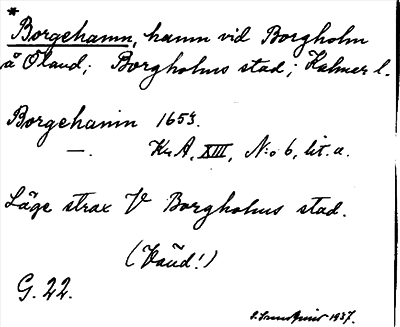 *
Borgehamn, hamn vid Borgholm
å Öland; Borgholms stad; Kalmar l.
Borgehamn 1653.
—. Kr A, XIII, N:o 6, lit. a.
Läge strax V Borgholms stad.
(Vad!)
G. 22.
1937.